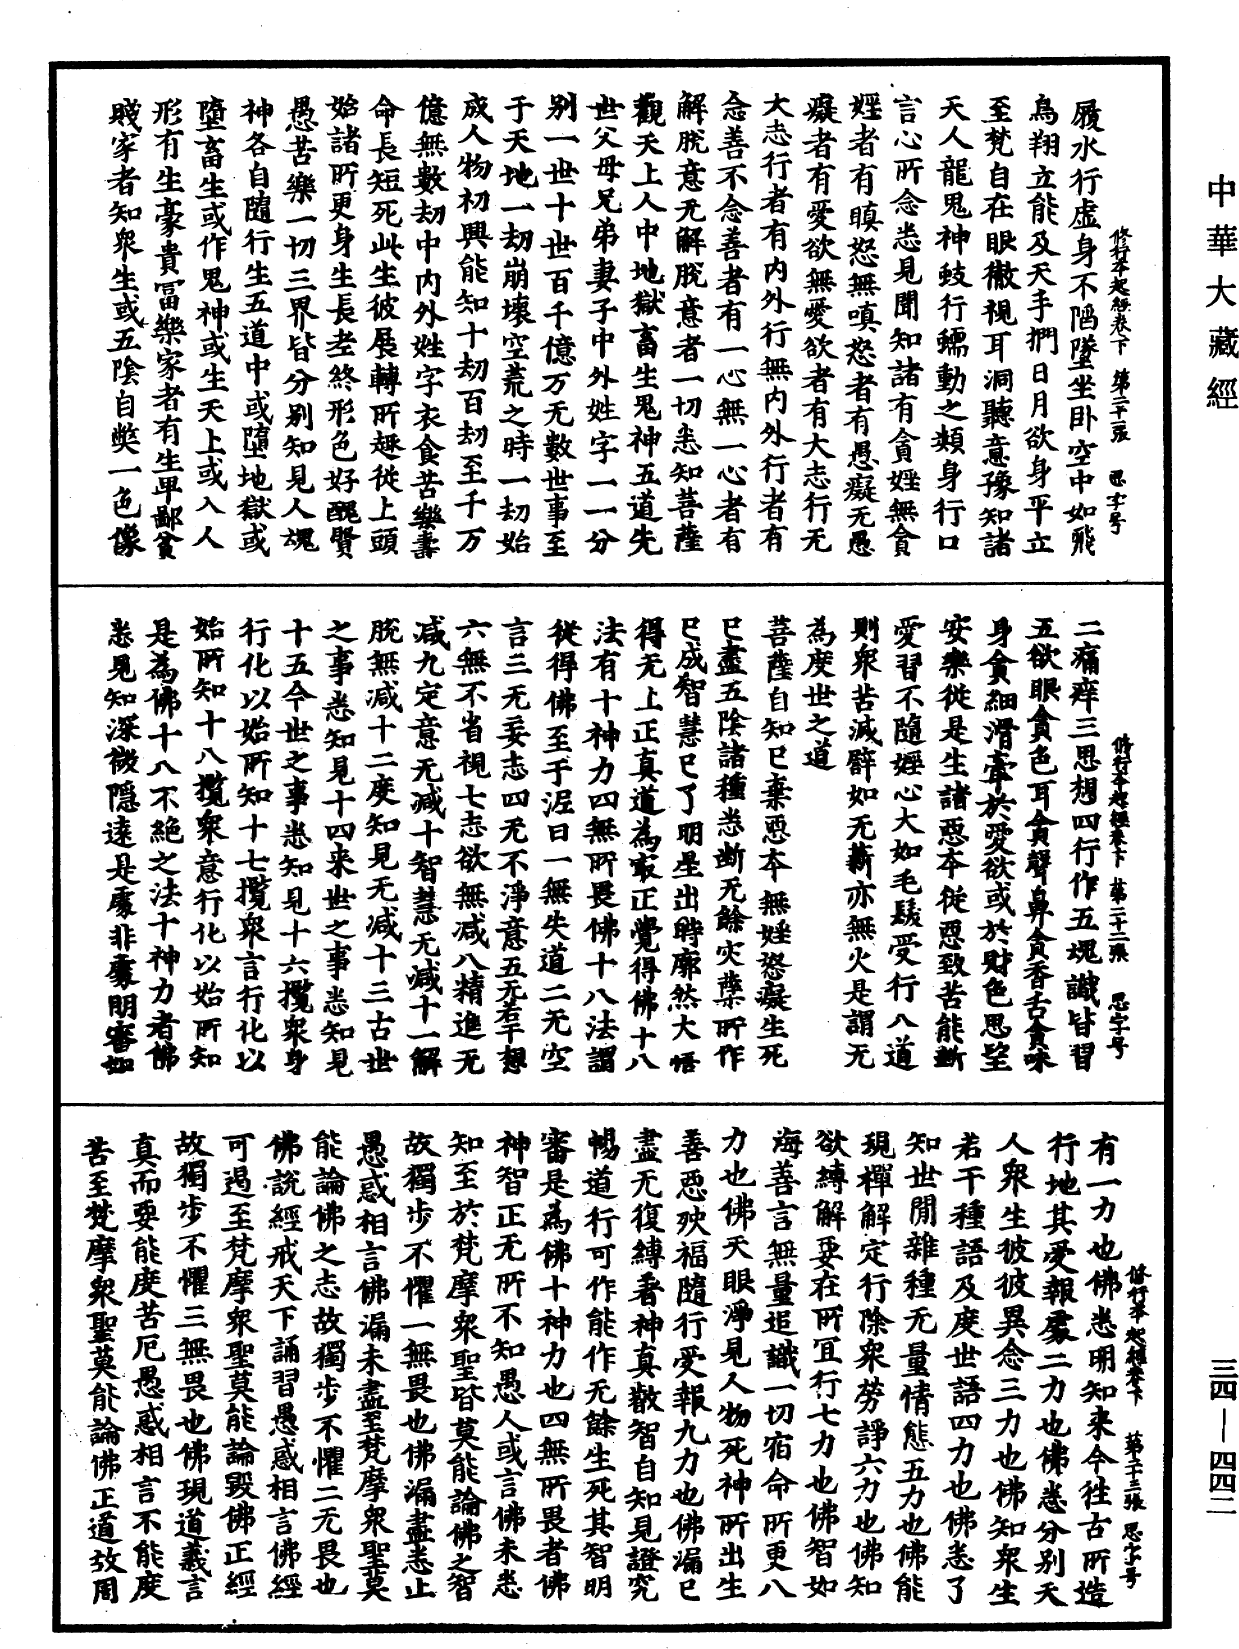 中華大藏經
三四—四四二
修行本起經卷下 第二十一張 思字号
履水行虛身不陷墜坐卧空中如飛
鳥翔立能及天手捫日月欲身平立
至梵自在眼徹視耳洞聽意豫知諸
天人龍鬼神蚑行蠕動之類身行口
言心所念悉見聞知諸有貪婬無貪
婬者有瞋怒無嗔怒者有愚癡无愚
癡者有愛欲無愛欲者有大志行无
大志行者有内外行無内外行者有
念善不念善者有一心無一心者有
解脫意无解脫意者一切悉知菩薩
觀天上人中地獄畜生鬼神五道先
世父母兄弟妻子中外姓字一一分
别一世十世百千億万无數世事至
于天地一劫崩壞空荒之時一劫始
成人物初興能知十劫百劫至千万
億無數劫中内外姓字衣食苦樂壽
命長短死此生彼展轉所趣從上頭
始諸所更身生長老終形色好醜賢
愚苦樂一切三界皆分别知見人魂
神各自隨行生五道中或墮地獄或
墮畜生或作鬼神或生天上或入人
形有生豪貴冨樂家者有生卑鄙貧
賤家者知衆生或五陰自弊一色像
修行本起經卷下 第二十二張 思字号
二痛痒三思想四行作五魂識皆習
五欲眼貪色耳貪聲鼻貪香舌貪味
身貪細滑牽於愛欲或於財色思望
安樂從是生諸惡本從惡致苦能斷
愛習不隨婬心大如毛髮受行八道
則衆苦滅辟如无薪亦無火是謂无
為度世之道
菩薩自知已棄惡本無婬怒癡生死
已盡五陰諸種悉斷无餘灾蘖所作
已成智慧已了明星出時廓然大悟
得无上正真道為最正覺得佛十八
法有十神力四無所畏佛十八法謂
從得佛至于泥曰一無失道二无空
言三无妄志四无不淨意五无若干想
六無不省視七志欲無减八精進无
减九定意无减十智慧无减十一解
脫無减十二度知見无减十三古世
之事悉知見十四来世之事悉知見
十五今世之事悉知見十六攬衆身
行化以始所知十七攬衆言行化以
始所知十八攬衆意行化以始所知
是為佛十八不絶之法十神力者佛
悉見知深微隱遠是處非處明審如
修行本起經卷下 第二十三張 思字号
有一力也佛悉明知来今往古所造
行地其受報處二力也佛悉分别天
人衆生彼彼異念三力也佛知衆生
若干種語及度世語四力也佛悉了
知世間雜種无量情態五力也佛能
現禪解定行除衆勞諍六力也佛知
欲縛解要在所宜行七力也佛智如
海善言無量追識一切宿命所更八
力也佛天眼淨見人物死神所出生
善惡殃福隨行受報九力也佛漏已
盡无復縛著神真叡智自知見證究
暢道行可作能作无餘生死其智明
審是為佛十神力也四無所畏者佛
神智正无所不知愚人或言佛未悉
知至於梵摩衆聖皆莫能論佛之智
故獨步不懼一無畏也佛漏盡悉止
愚惑相言佛漏未盡至梵摩衆聖莫
能論佛之志故獨步不懼二无畏也
佛說經戒天下誦習愚惑相言佛經
可遏至梵摩衆聖莫能論毀佛正經
故獨步不懼三無畏也佛現道義言
真而要能度苦厄愚惑相言不能度
苦至梵摩衆聖莫能論佛正道故周